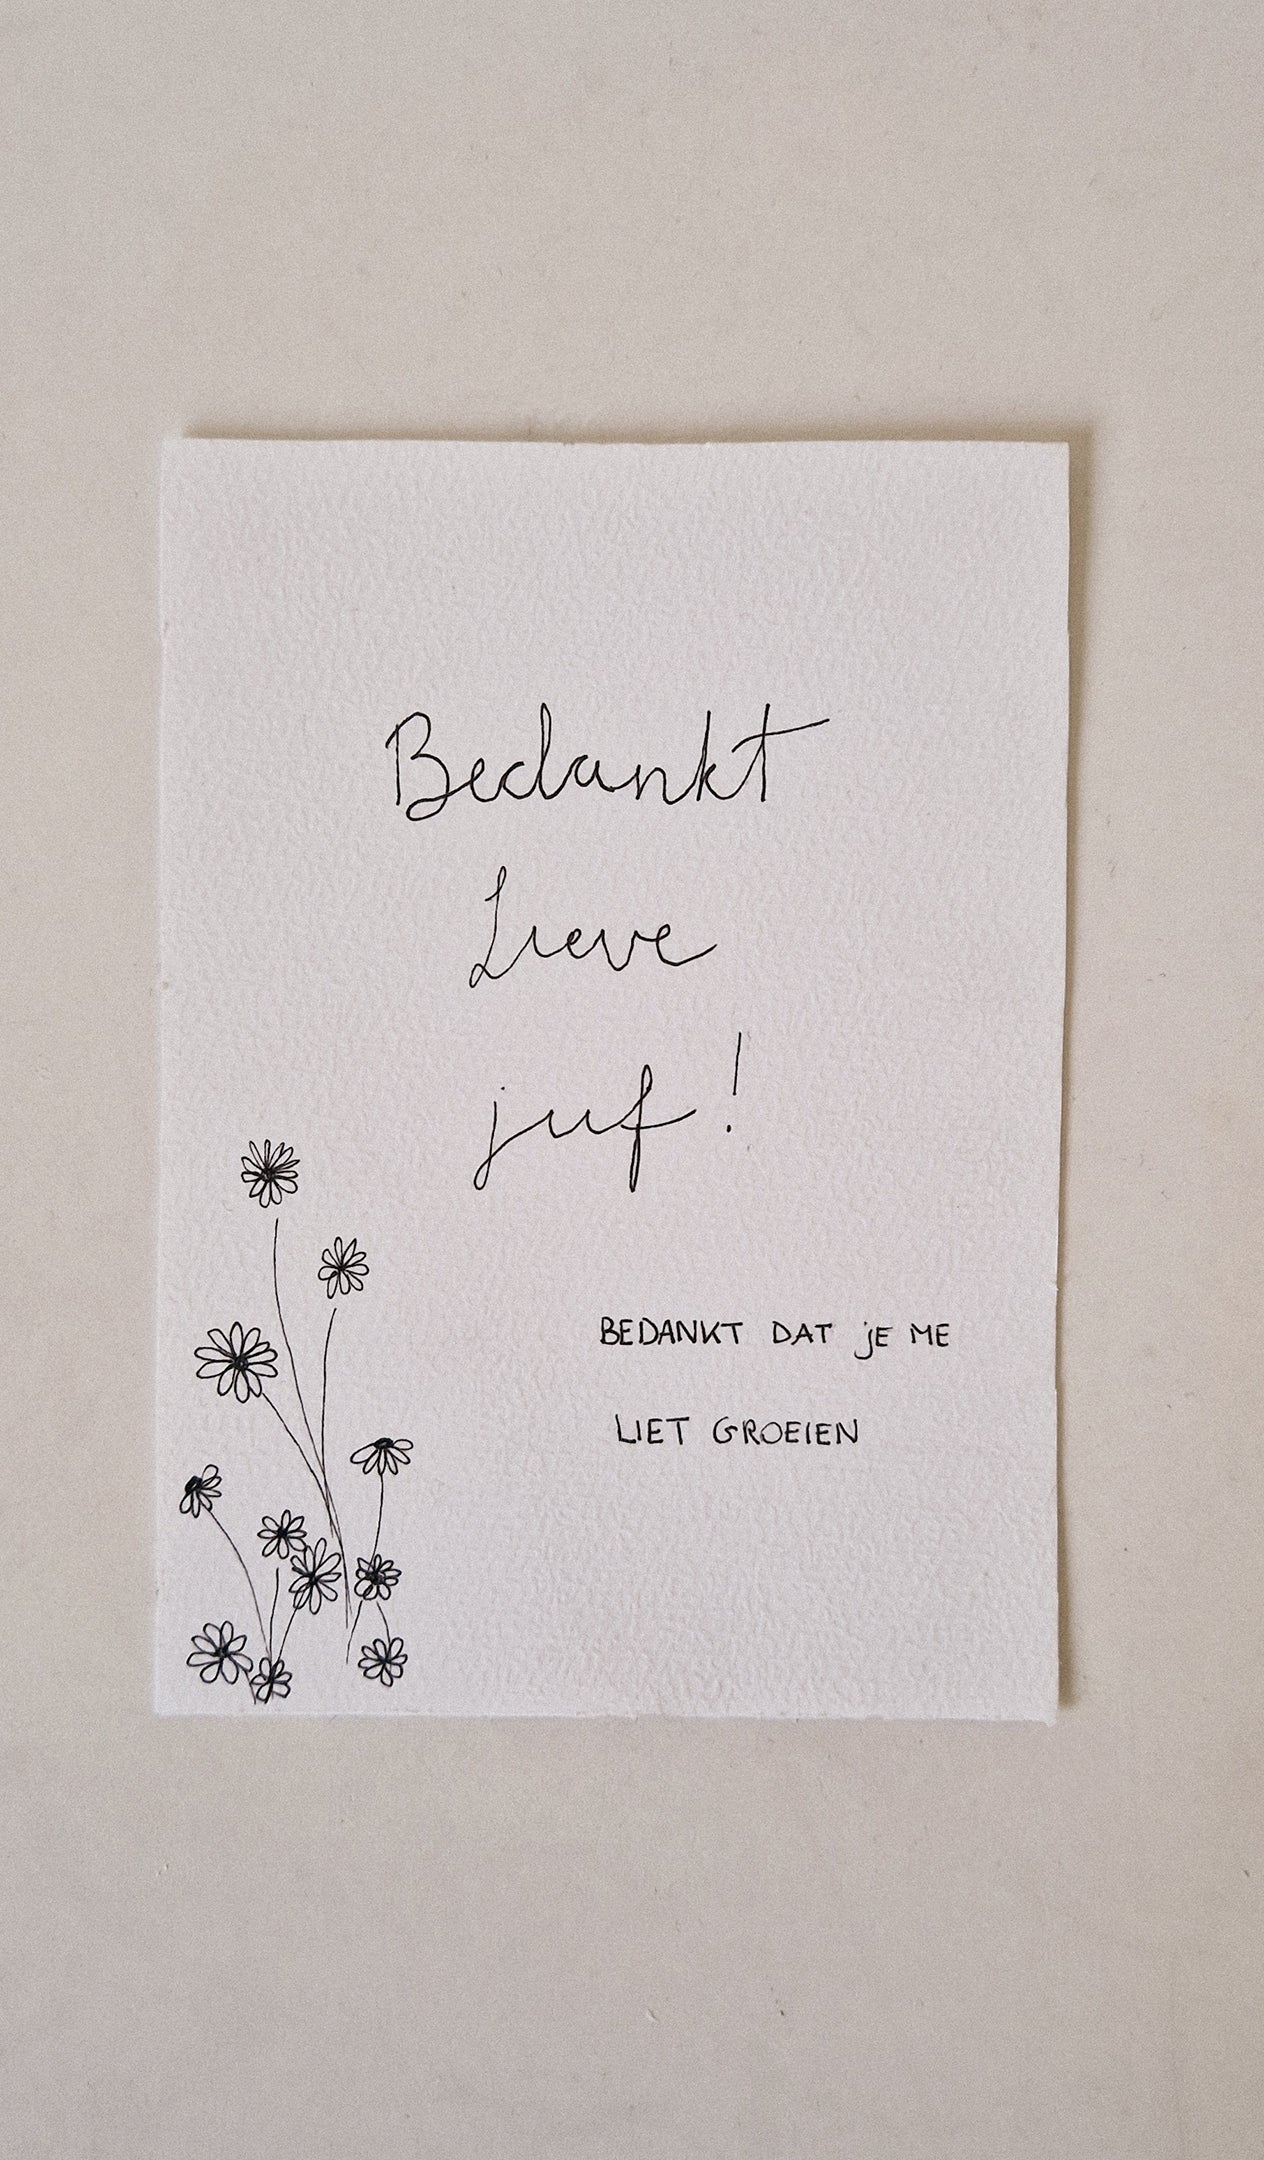 Bedankt
Lieve
juf!
BEDANKT DAT jE ME
LIET GROEIEN